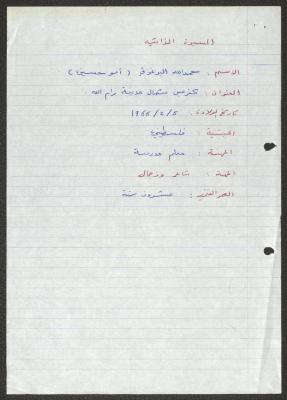 السيرة الذاتية
الاسم : سعدالله البرغوثي ( أبو حسين )
العنوان : كفر عين شمال مدينة رام الله .
تاريخ الولادة : ١٩٦٦/٢/٥
الجنسية : فلسطيني
المهنة : معلم مدرسة
المهنة : شاعر وزجال
العمر الفني : عشرون سنة